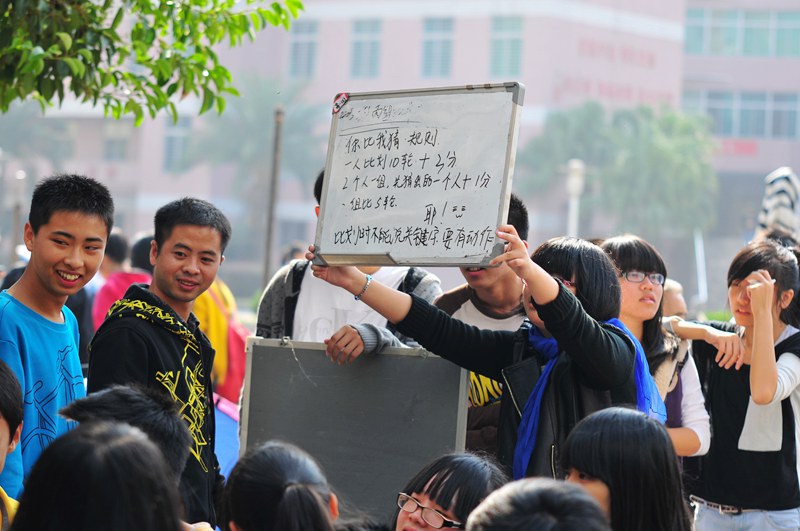 你比我猜 规则.
一人比划10轮 +2分
2个人一组, 先猜出的一个人+1分
一组比5轮
耶!
比划时不能说关键字要有动作